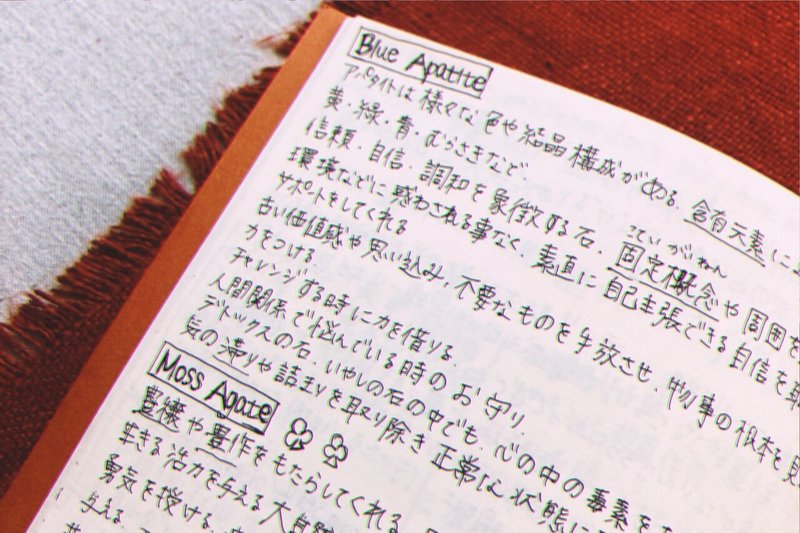 Blue Apatite
アパタイトは様々な色や結晶構成がある。含有元素に
黄・緑・青・むらさきなど。
信頼・自信・調和を象徴する石。固定概念や周囲
こていがいねん
環境などに惑わされる事なく、素直に自己主張できる自信を
サポートをしてくれる
古い価値感や思い込み、不要なものを手放させ、物事の根本を見
力をつける。
チャレンジする時に力を借りる。
人間関係で悩んでいる時のお守り。
デトックスの石。いやしの石の中でも、心の中の毒素を
気の滞りや詰まりを取り除き正常な状態に
Moss Agate
豊穣や豊作をもたらしてくれる
生きる活力を与える大自然
勇気を授ける。
与える。